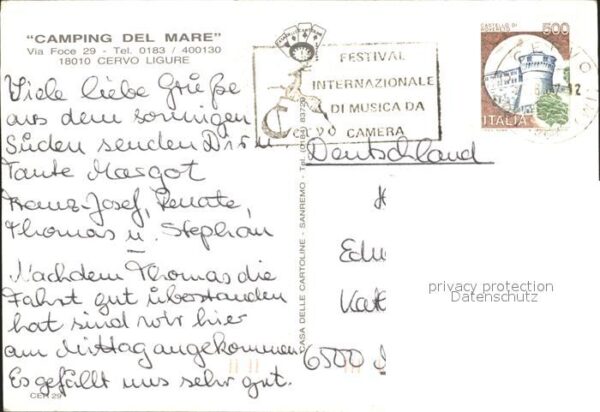 "CAMPING DEL MARE"
Via Foce 29 - Tel. 0183 / 400130
18010 CERVO LIGURE
Viele liebe Grüße
aus dem sonnigen
Süden senden Dir
Tante Margot
Franz-Josef, Renate,
Thomas u. Stephan
Nachdem Thomas die
Fahrt gut überstanden
hat sind wir hier
am Mittag angekommen
Es gefällt uns sehr gut.
CER 29
CASA DELLE CARTOLINE - SANREMO - Tel. (0184)
FESTIVAL
INTERNAZIONALE
DI MUSICA DA
CAMERA
CERVO
CASTELLO DI
ROVERETO
500
ITALIA
CERVO
12
Deutschland
Edu
Kat
6500
privacy protection
Datenschutz